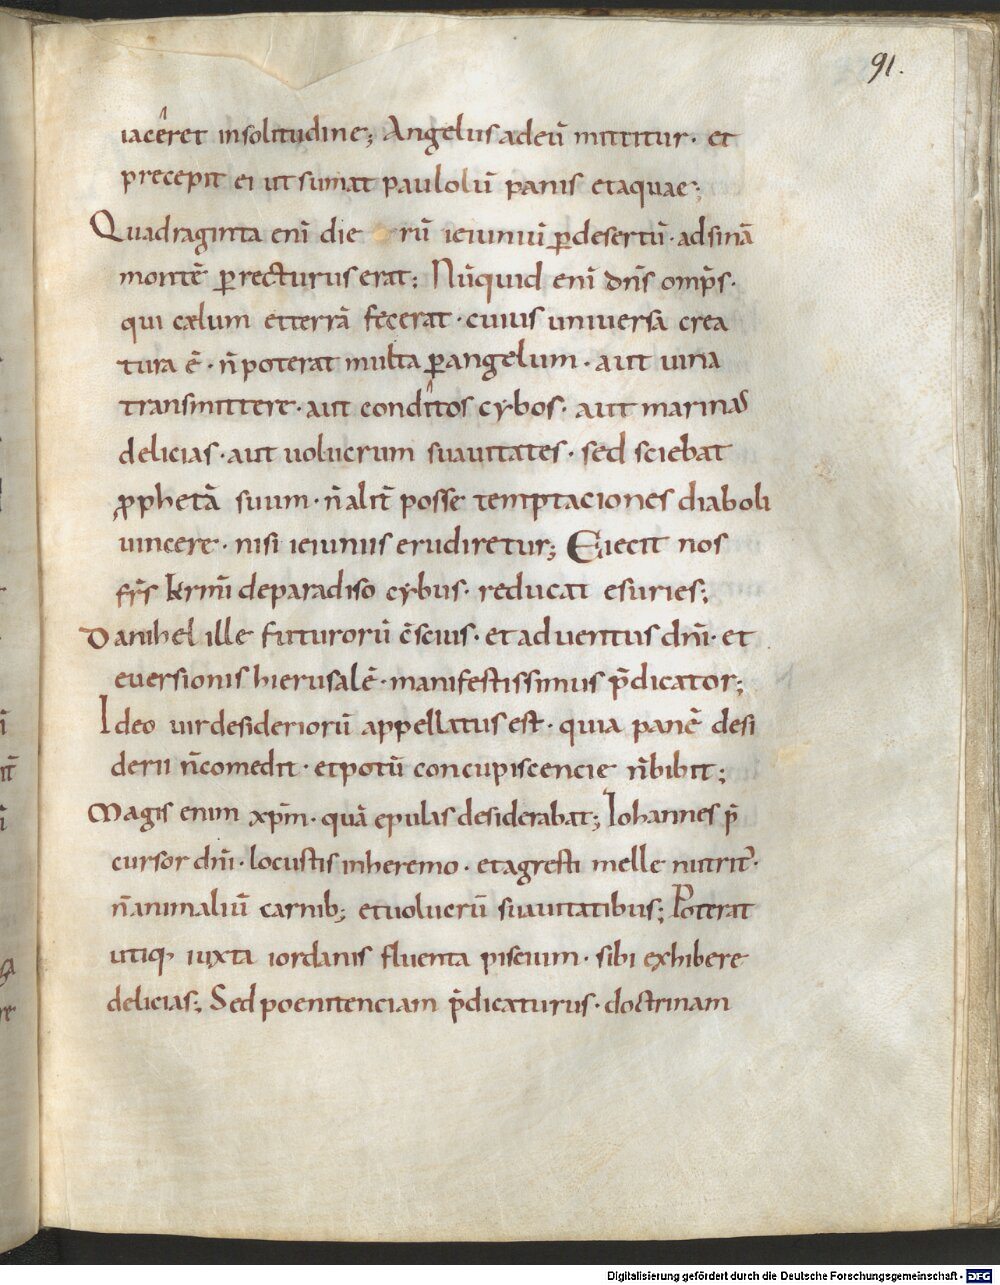 91.
iaceret insolitudine; Angelus adeū mittitur · et
precepit ei ut sumat paulolū panis etaquae;
Quadraginta enī die rū ieiuniū ꝑdesertū · adsinā
montē ꝑrecturus erat; Nūquid enī dn̄s omp̄s ·
qui cælum etterrā fecerat · cuius uniuersa crea
tura ē · n̄ poterat multa ꝑangelum · aut uina
transmittere · aut conditos cybos · aut marinas
delicias · aut uolucrum suauitates · sed sciebat
ꝓphetā suum · n̄ alit̄ posse temptaciones diaboli
uincere · nisi ieiuniis erudiretur; Eiecit nos
fr̄s kr̄mi deparadiso cybus · reducat esuries;
Danihel ille futurorū c̄scius · et aduentus dn̄i · et
euersionis hierusalē · manifestissimus p̄dicator;
Ideo uirdesideriorū appellatus est · quia panē desi
derii n̄comedit · etpotū concupiscencie n̄bibit;
Magis enim xp̄m · quā epulas desiderabat; Iohannes p̄
cursor dn̄i · locustis inheremo · etagresti melle nutrit᷑ ·
n̄animaliū carnib; etuolucrū suauitatibus; Poterat
utiq, iuxta iordanis fluenta piscium · sibi exhibere
delicias; Sed poenitenciam p̄dicaturus · doctrinam
Digitalisierung gefördert durch die Deutsche Forschungsgemeinschaft - DFG